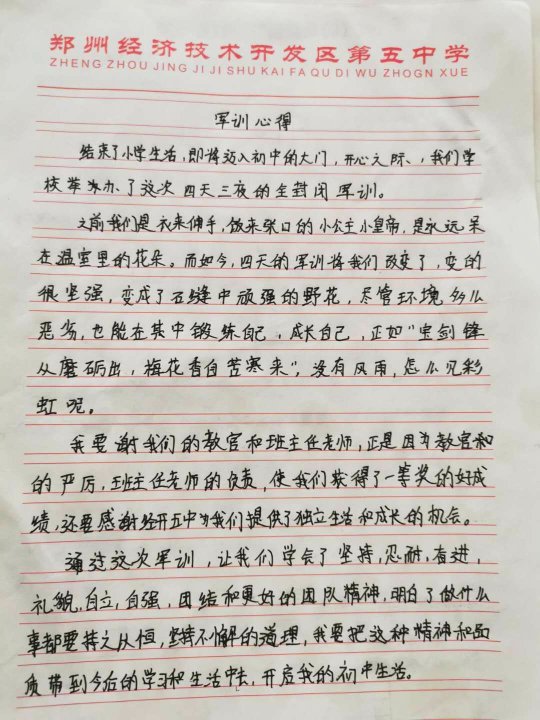 郑州经济技术开发区第五中学
ZHENG ZHOU JING JI JI SHU KAI FA QU DI WU ZHOGN XUE
军训心得
结束了小学生活,即将迈入初中的大门,开心之际、,我们学
校举办了这次四天三夜的全封闭军训。
之前我们是衣来伸手,饭来张口的小公主小皇帝,是永远呆
在温室里的花朵。而如今,四天的军训将我们改变了,变的
很坚强,变成了石缝中顽强的野花,尽管环境多么
恶劣,也能在其中锻炼自己,成长自己,正如“宝剑锋
从磨砺出,梅花香自苦寒来”,没有风雨,怎么见彩
虹呢。
我要谢我们的教官和班主任老师,正是因为教官和
的严厉,班主任老师的负责,使我们获得了一等奖的好成
绩,还要感谢经开五中为我们提供了独立生活和成长的机会。
通过这次军训,让我们学会了坚持,忍耐,奋进,
礼貌,自立,自强,团结和更好的团队精神,明白了做什么
事都要持之从恒,坚持不懈的道理,我要把这种精神和品
质带到今后的学习和生活中去,开启我的初中生活。